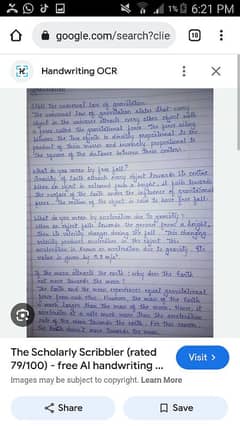 1% 6:21 PM
google.com/search?clie
18
Handwriting OCR
State the universal law of gravitation
The universal law of gravitation states that every
object in the universe attracts every other object with
a force called the gravitational force. The force acting
between two objects is directly proportional to the
product of their masses and inversely proportional to
the square of the distance between their centers.
What do you mean by free fall?
Gravity of Earth attracts every object towards its center.
When an object is released from a height, it falls towards
the surface of the Earth under the influence of gravitational
force. The motion of the object is said to have free fall.
What do you mean by acceleration due to gravity?
When an object falls towards the ground from a height,
then its velocity changes during the fall. This changing
velocity produces acceleration in the object. This
acceleration is known as acceleration due to gravity. Its
value is given by 9.8 m/s².
If the moon attracts the earth, why does the Earth
not move towards the moon?
The Earth and the moon experience equal gravitational
force from each other. However, the mass of the Earth
is much larger than the mass of the moon. Hence, it
accelerates at a rate much lesser than the acceleration
rate of the moon towards the Earth. For this reason,
the Earth does not move towards the moon.
The Scholarly Scribbler (rated
79/100) - free AI handwriting ...
Visit >
Images may be subject to copyright. Learn More
Share
Save